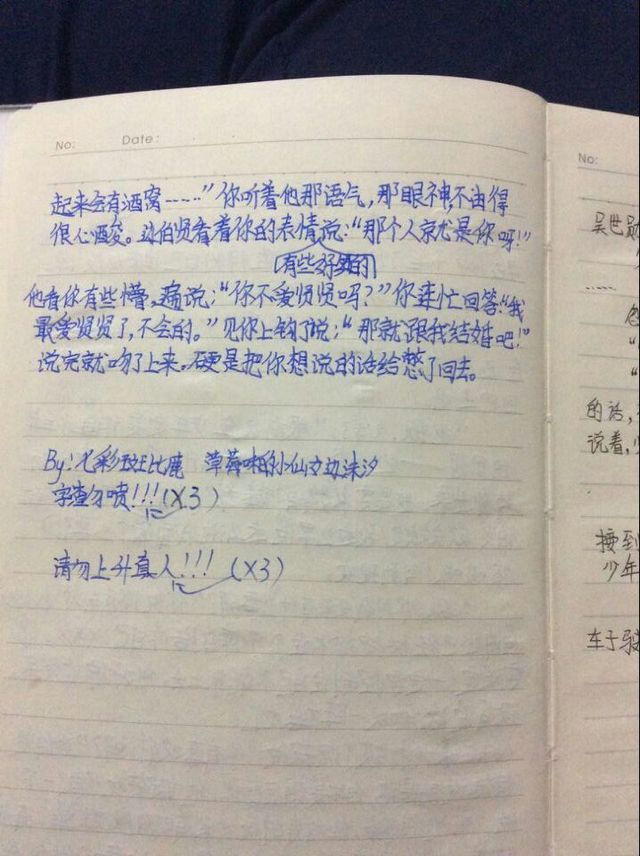 No:
Date:
起来会有酒窝……”你听着他那语气，那眼神不由得
很心酸。边伯贤看着你的表情说：“那个人就是你呀！”
有些好笑的
他看你有些懵。遍说：“你不爱贤贤吗？”你连忙回答：“我
最爱贤贤了，不会的。”见你上钩了说：“那就跟我结婚吧！”
说完就吻了上来。硬是把你想说的话给憋了回去。
By：七彩斑比鹿 小仙女边沫汐
字渣勿喷!!!(X3)
请勿上升真人!!!(X3)
No:
吴世勋
……
“
“
的话，
说着，
接到
少年
车子驶